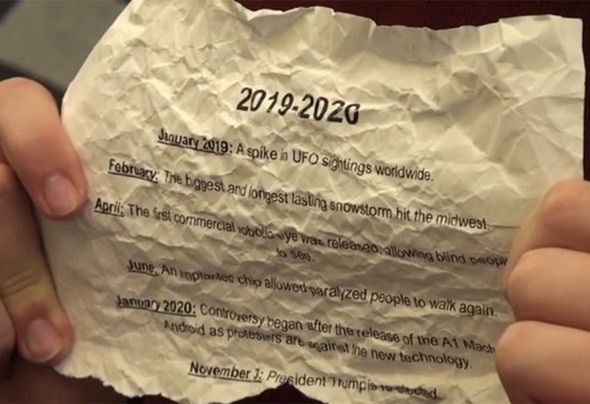 2019-2020
January 2019: A spike in UFO sightings worldwide.
February: The biggest and longest lasting snowstorm hit the midwest.
April: The first commercial robotic eye was released, allowing blind people
to see.
June, An implanted chip allowed paralyzed people to walk again.
January 2020: Controversy began after the release of the A1 Mach
Android as protesters are against the new technology.
November 3: President Trump is re elected.